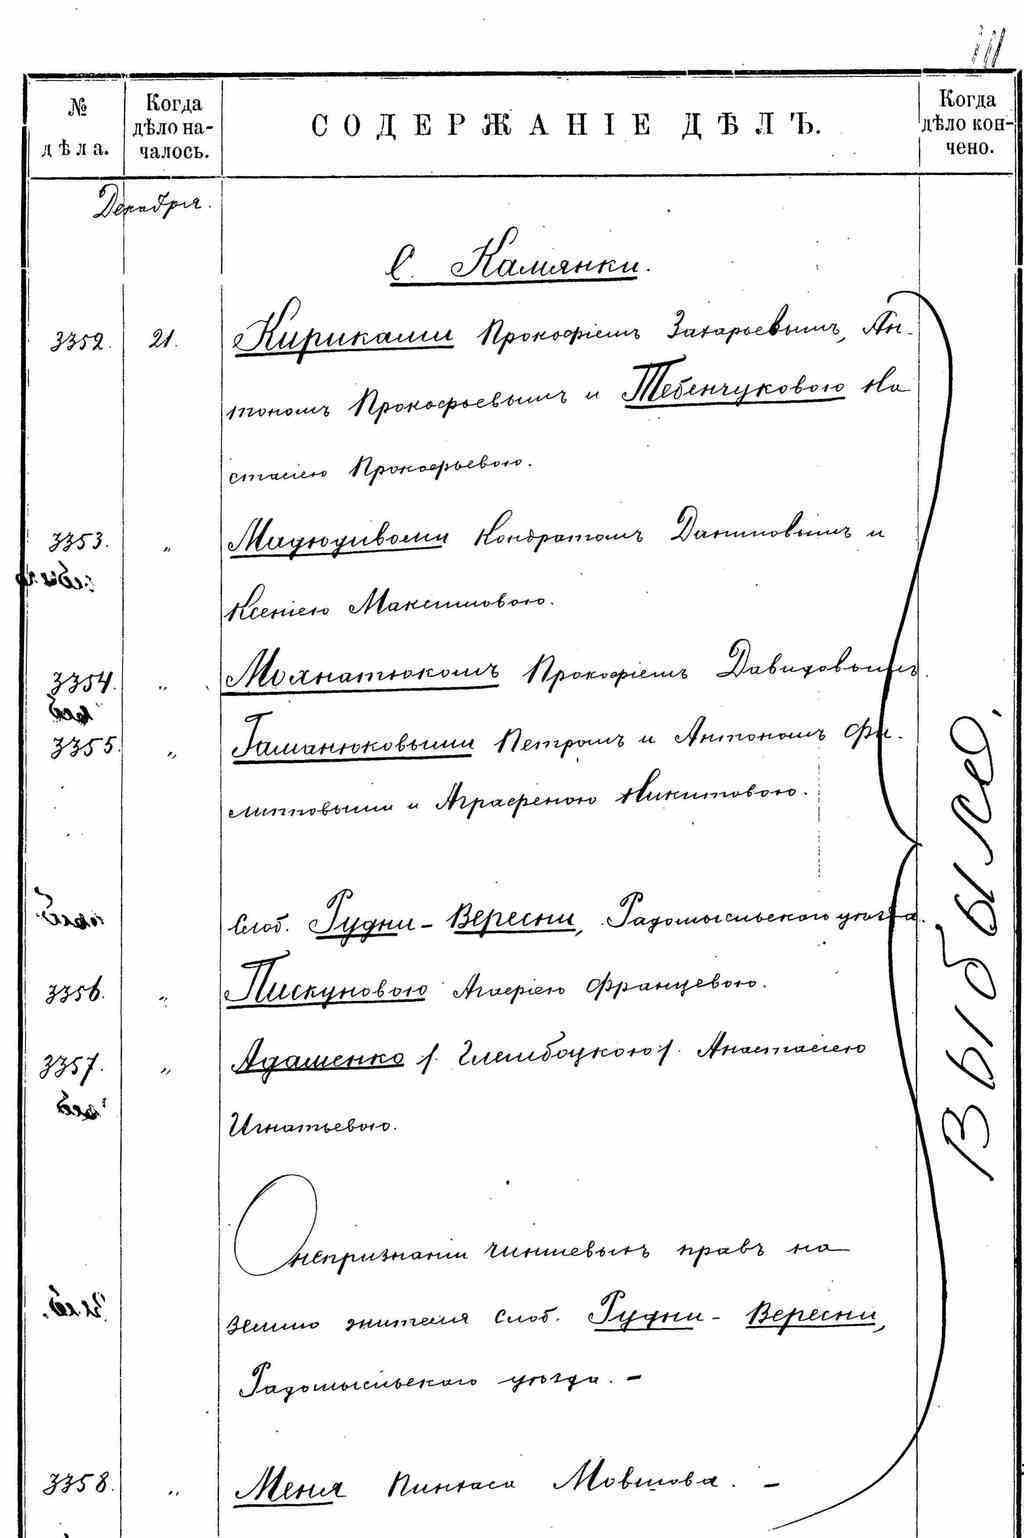 № дѣла.
Когда дѣло началось.
СОДЕРЖАНІЕ ДѢЛЪ.
Когда дѣло кончено.
Декабря.
С. Камянки.
3352. 21. Кириками Прокофіемъ Захарьевымъ, Ан-
тономъ Прокофьевымъ и Тебенчуковою На
стасіею Прокофьевою.
3353. „ Мадюдивами Кондратомъ Даниловымъ и
Ксеніею Максимовою.
3354. „ Мохнатюкомъ Прокофіемъ Давидовымъ.
3355. „ Гаманюковыми Петромъ и Антономъ Фи-
липповыми и Аграфеною Никитовою.
Слоб. Рудни-Вересни, Радомысльского уѣзда.
3356. „ Пискуновою Агафіею Францевою.
3357. „ Адаменко /. Глембоцкою /. Анастасіею
Игнатьевою.
О непризнаніи чиншевыхъ правъ на
землю жителя слоб. Рудни-Вересни,
Радомысльского уѣзда. –
3358. „ Меня Пинхаса Мовшова. –
выбыло.